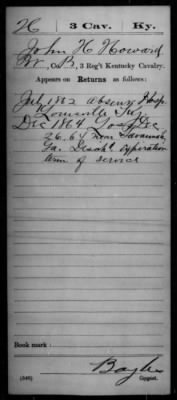 H | 3 Cav. | Ky.
John H Howard
, Co. B, 3 Reg't Kentucky Cavalry.
Appears on
Returns as follows:
July 1862 absent Hosp
Louisville Ky
Dec 1864 Dec
26.64 near Savannah
Ga. Disch'd expiration
term of service
Book mark:
(546)
Copyist.